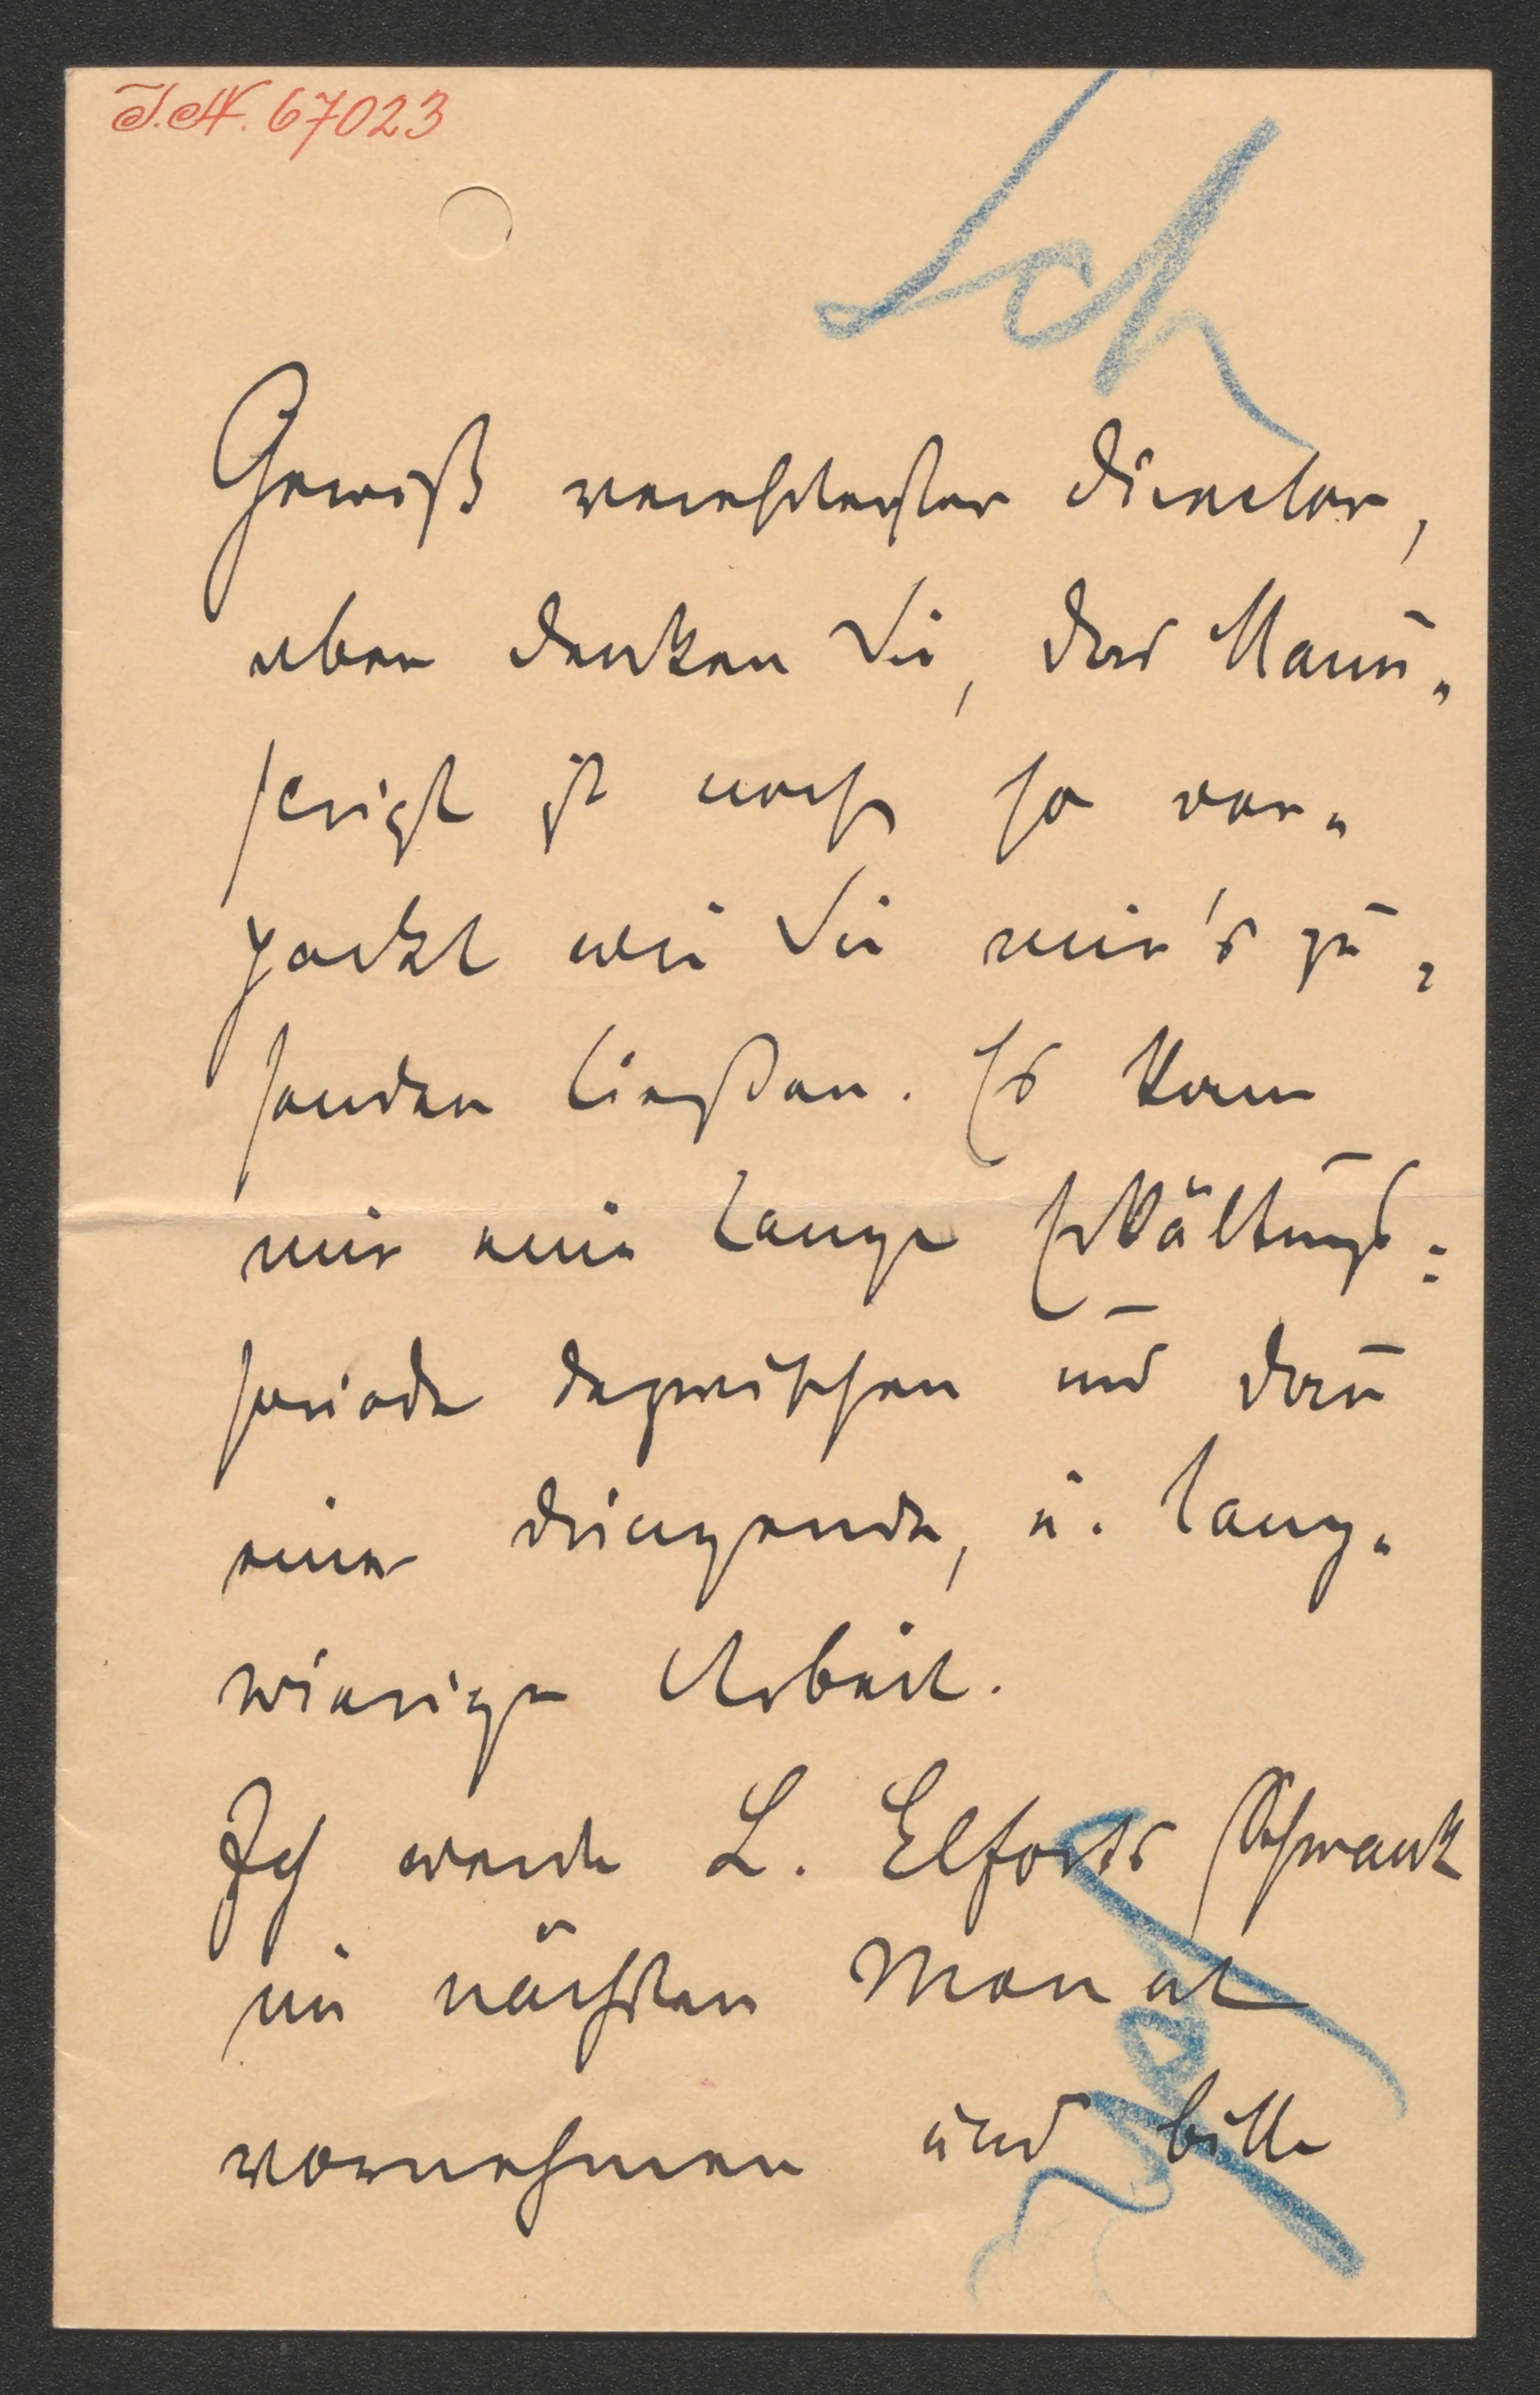 I.N. 67023
Sch
Gewiß verehrtester Director,
aber denken Sie, das Manu-
script ist noch so ver-
packt wie Sie mir's zu-
senden ließen. Es kam
mir eine lange Erkältungs-
periode dazwischen und dann
eine dringende, u. lang-
wierige Arbeit.
Ich werde L. Elforts Schwank
im nächsten Monat
vornehmen und bitte